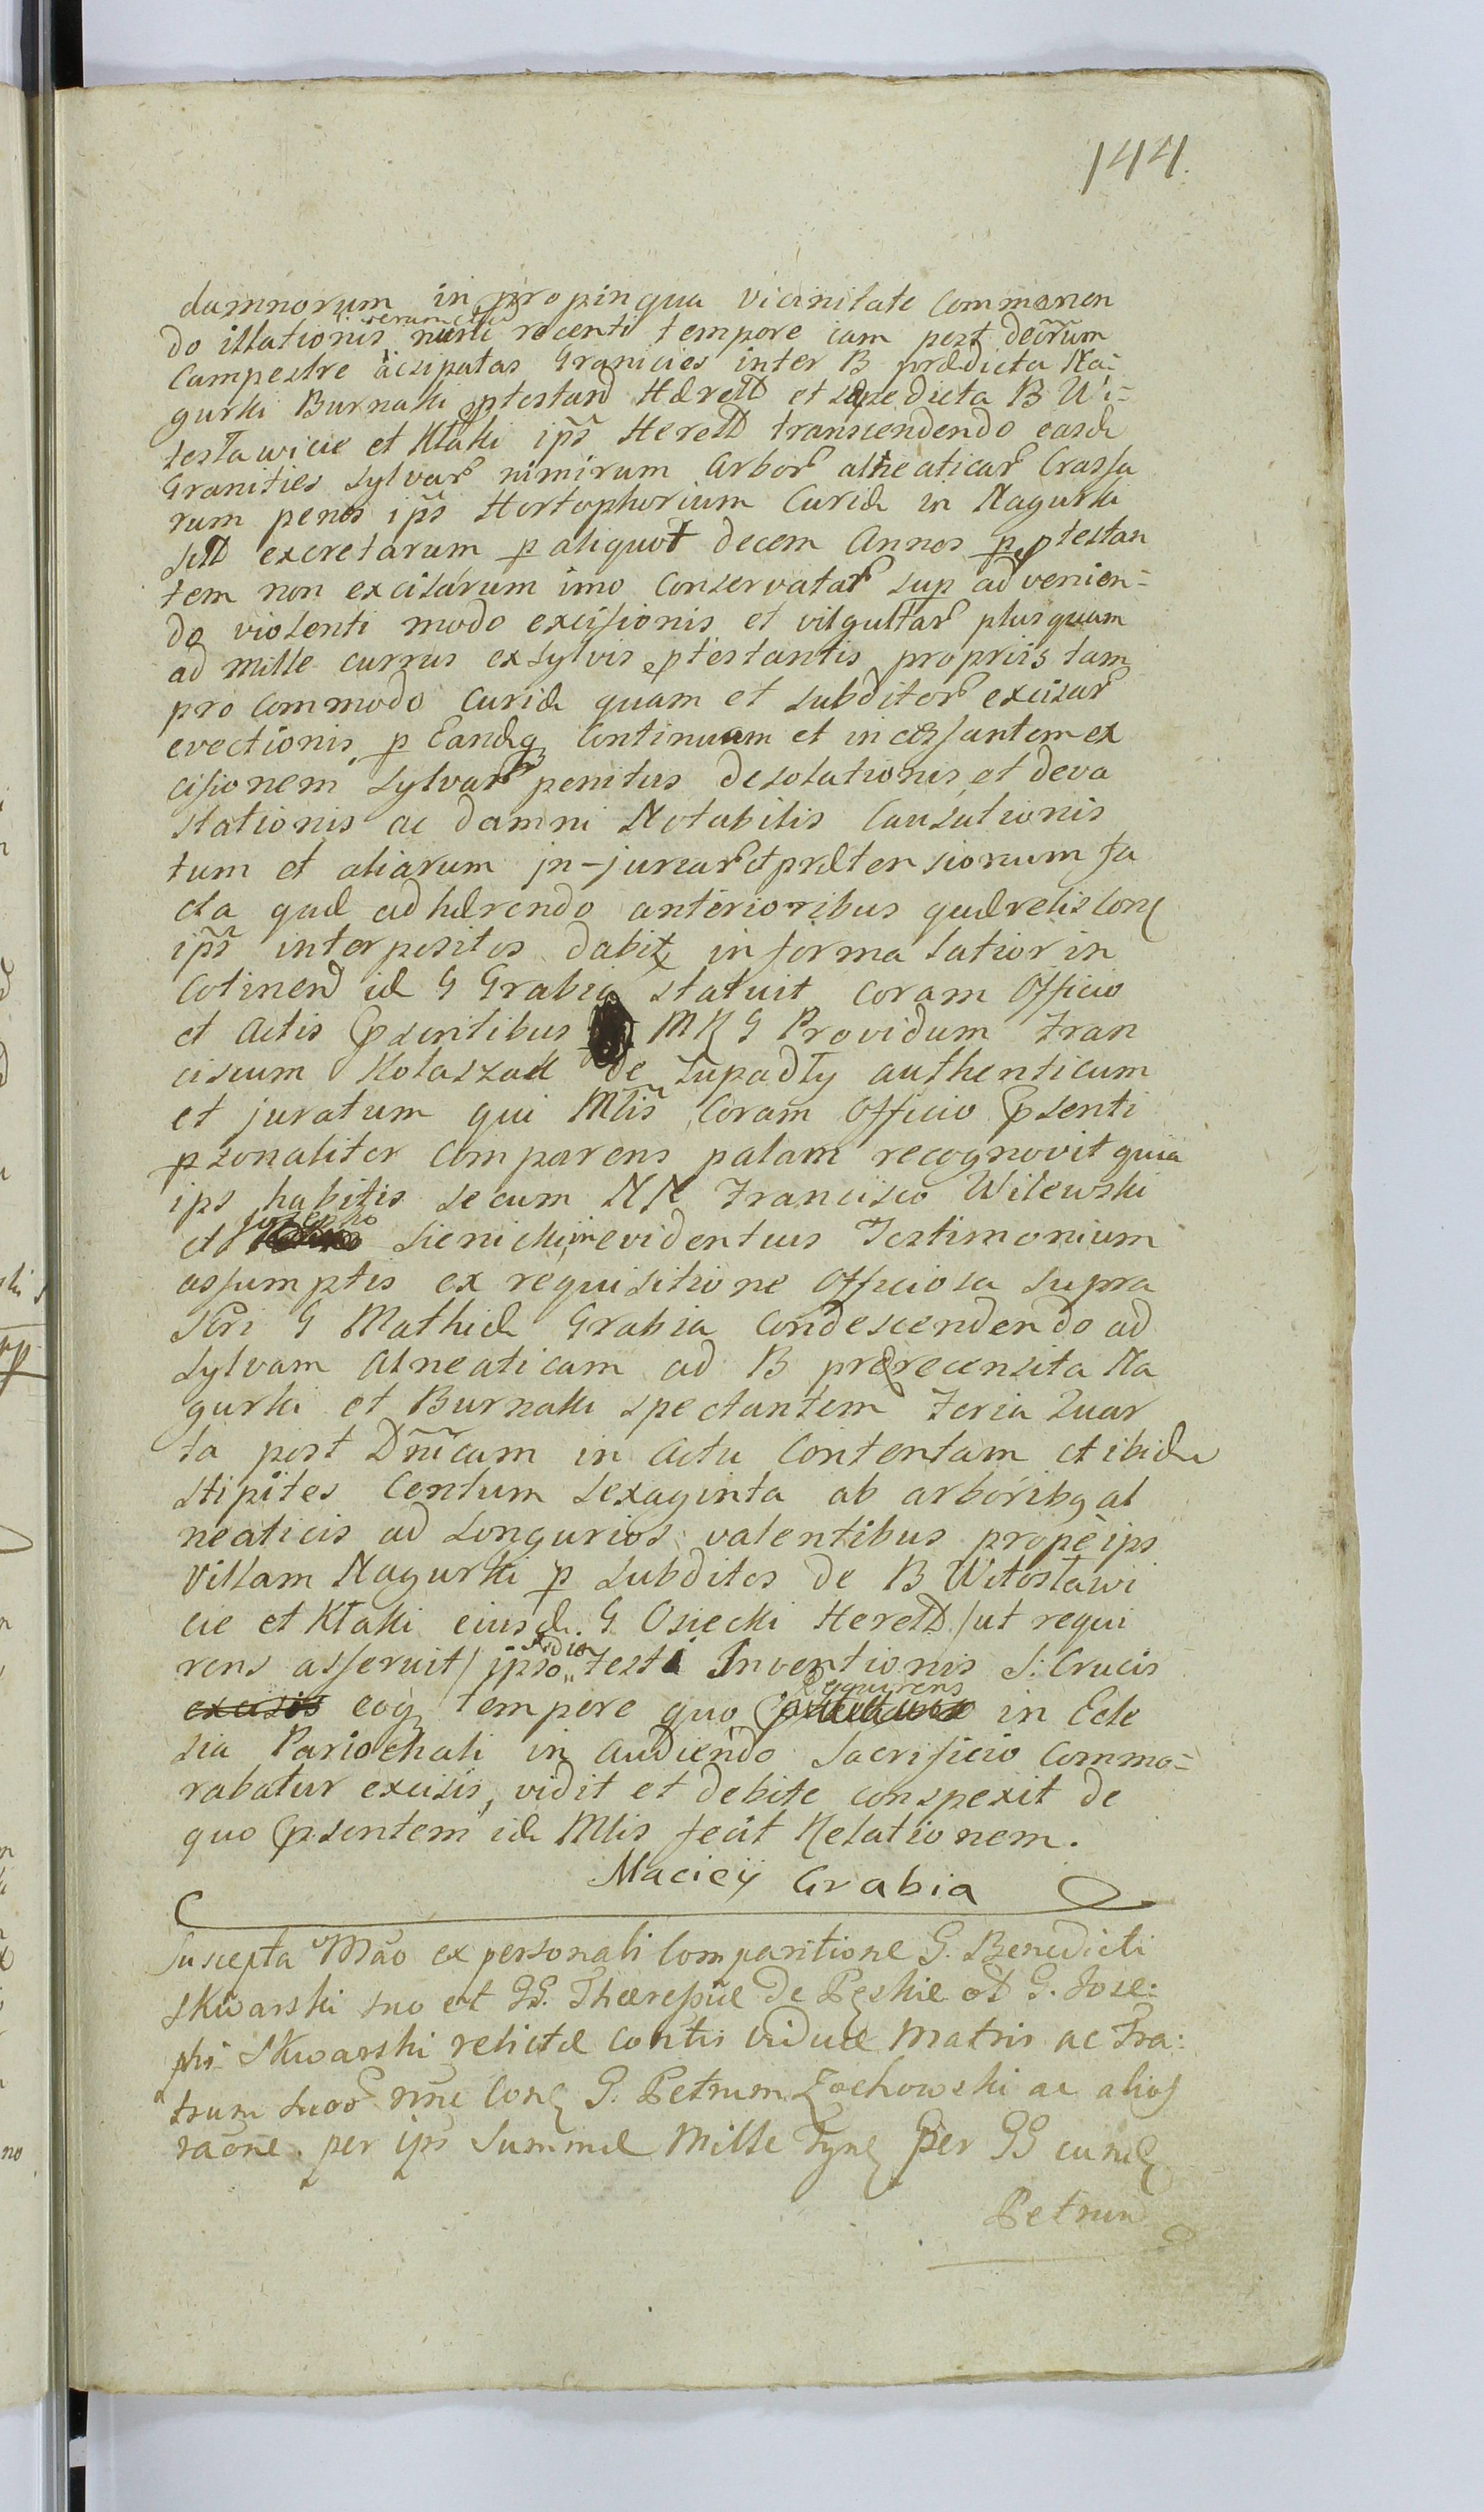 144.
damnorum in propinqua vicinitate commanen
do illationis nunc recenti tempore iam post decrum
Campestre acsipatas Granicies inter B prædicta Na-
gurki Burnaki ptestand Hæredd et sæpedicta B Wi-
tosławice et Kłaki ips Heredd transcendendo easd
Granities sylvar nimirum Arbor alneaticar Crassa
rum penes ips Hortophorium Curiæ in Nagurki
sitt excretarum p aliquot decem Annos p ptestan
tem non excisarum imo Conservatar sup advenien-
do violenti modo excisionis et vilgultar plusquam
ad Mille currus ex sylvis ptestantis propriis tam
pro Commodo Curiæ quam et subditor excisar
evectionis p Eandq Continuam et incessantem ex
cisionem sylvar penitus desolationis et deva
stationis ac damni Notabilis Causationis
tum et aliarum in-juriar et prætensionum fa
cta quæ adhærendo anterioribus quærelis Con
ips interpositos dabit in forma latior in
Cotinend id G Grabia statuit coram Officio
et Actis Psentibus MRG Providum Fran
ciscum Kolaszak de Łupadły authenticum
et juratum qui Mlis Coram Officio Psenti
psonaliter Comparens palam recognovit quia
ips habitis secum NN Francisco Wilewski
et Josepho Sienicki in evidentius Testimonium
assumptis ex requisitione Officiosa supra
scri G Mathiæ Grabia Condescendendo ad
sylvam Alneaticam ad B prærecensita Na
gurki et Burnaki spectantem Feria Quar
ta post Dnicam in Actu Contentam et ibid
stipites Centum sexaginta ab arboribg al
neaticis ad Longurios valentibus prope ips
Villam Nagurki p subditos de B Witosławi
cie et Kłaki eiusd. G Osiecki Heredd /ut requi
rens asseruit/ ipso die festi Inventionis S: Crucis
excisis eoq tempore quo Requirens in Ecle
sia Pariochali in Audiendo Sacrificio Commo-
rabatur excisis, vidit et debite conspexit de
quo Psentem id Mlis fecit Relationem.
Maciey Grabia
Suscepta Mao ex personali Comparitione G. Benedicti
Skwarski suo et GG. Theresiæ de Peskie et G. Jose:
phi Skwarski relictæ Contis viduæ Matris ac Fra:
trum suor nne Con G. Petrum Zochowski ac alios
raone per ips Summæ Mille Tyn per GG eund
Petrum